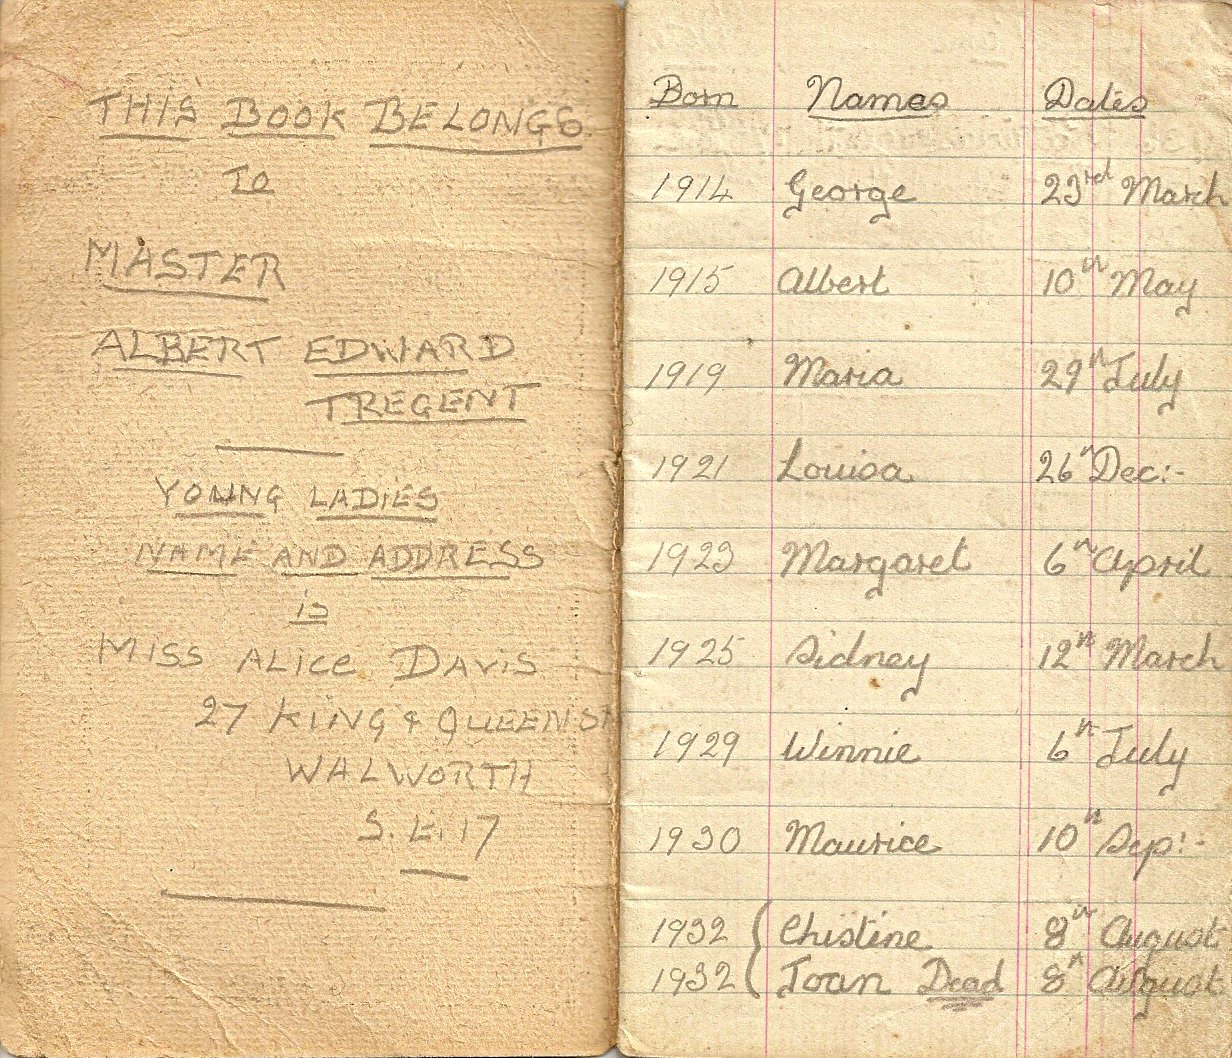 THIS BOOK BELONGS
TO
MASTER
ALBERT EDWARD
TREGENT
YOUNG LADIES
NAME AND ADDRESS
is
MISS ALICE DAVIS
27 KING & QUEEN ST
WALWORTH
S.E.17
Born Names Dates
1914 George 23rd March
1915 Albert 10th May
1919 Maria 29th July
1921 Louisa 26th Dec:-
1923 Margaret 6th April
1925 Sidney 12th March
1929 Winnie 6th July
1930 Maurice 10th Sep:-
1932 Chistine 8th August
1932 Joan Dead 8th August